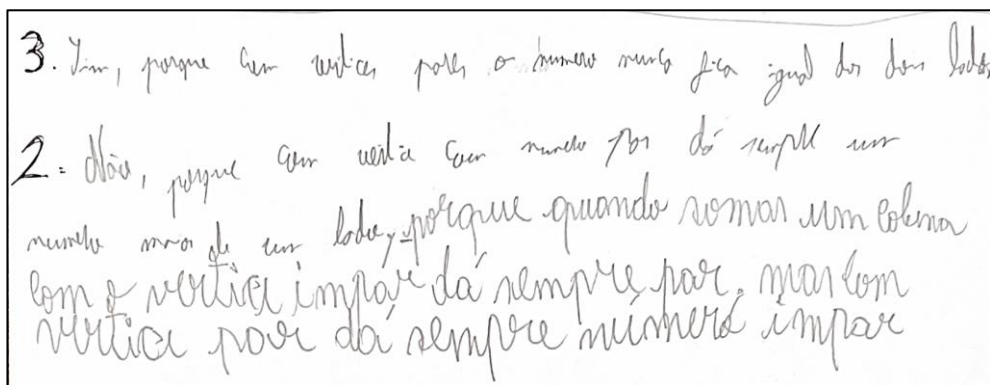 3. Sim, porque com vertices pares o número nunca fica igual dos dois lados
2. Não, porque com vertice com numero par dá sempre um
numero maior de um lado, porque quando somas um coluna
com o vertice impar dá sempre par. mas com
vertice par dá sempre número impar